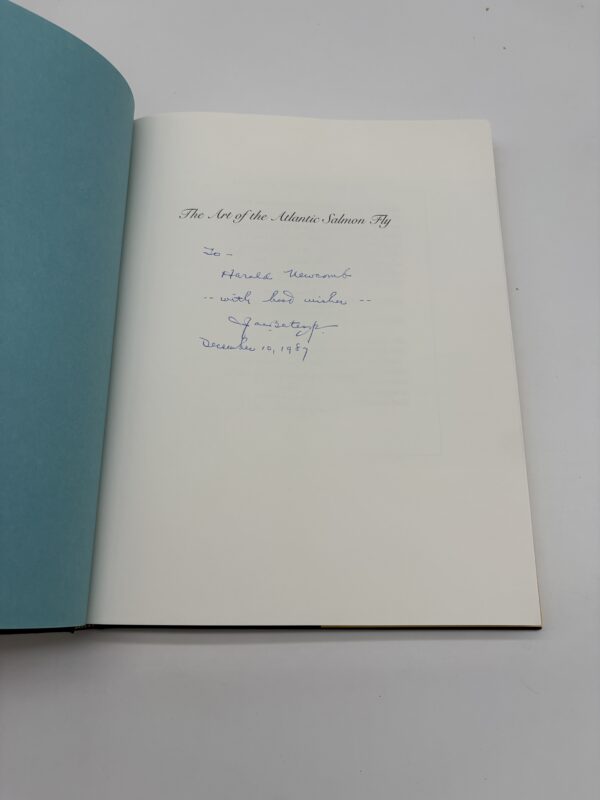 The Art of the Atlantic Salmon Fly
To -
Harald Newcomb
-- with best wishes --
December 10, 1987